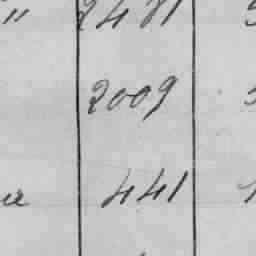 " 2481
2009
441